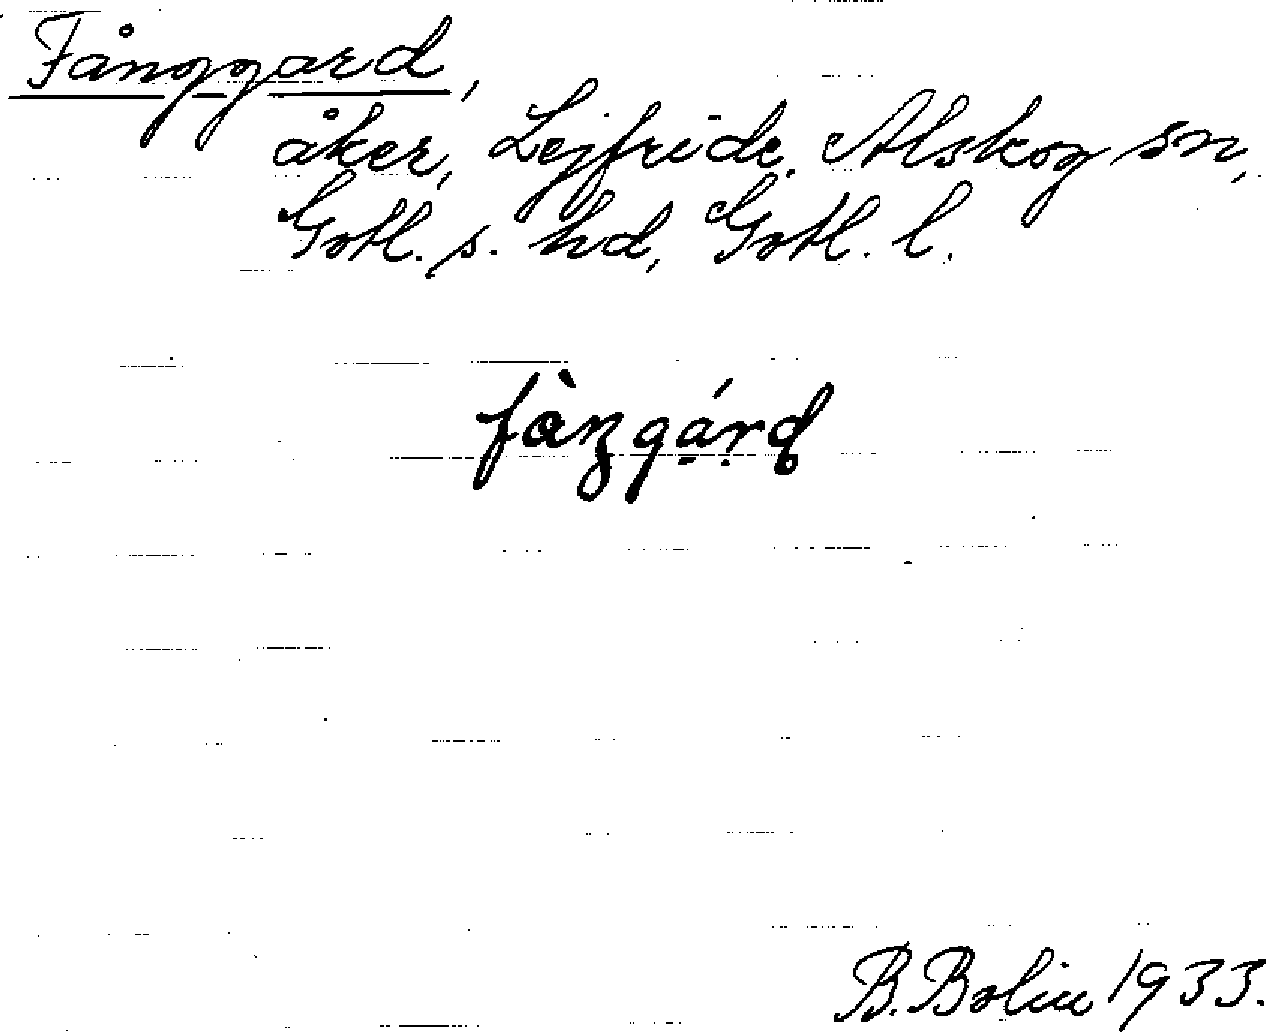 Fånggard,
åker, Lejfride, Alskog sn,
Gotl. s. hd, Gotl. l.
fàŋgárd
B. Bolin 1933.